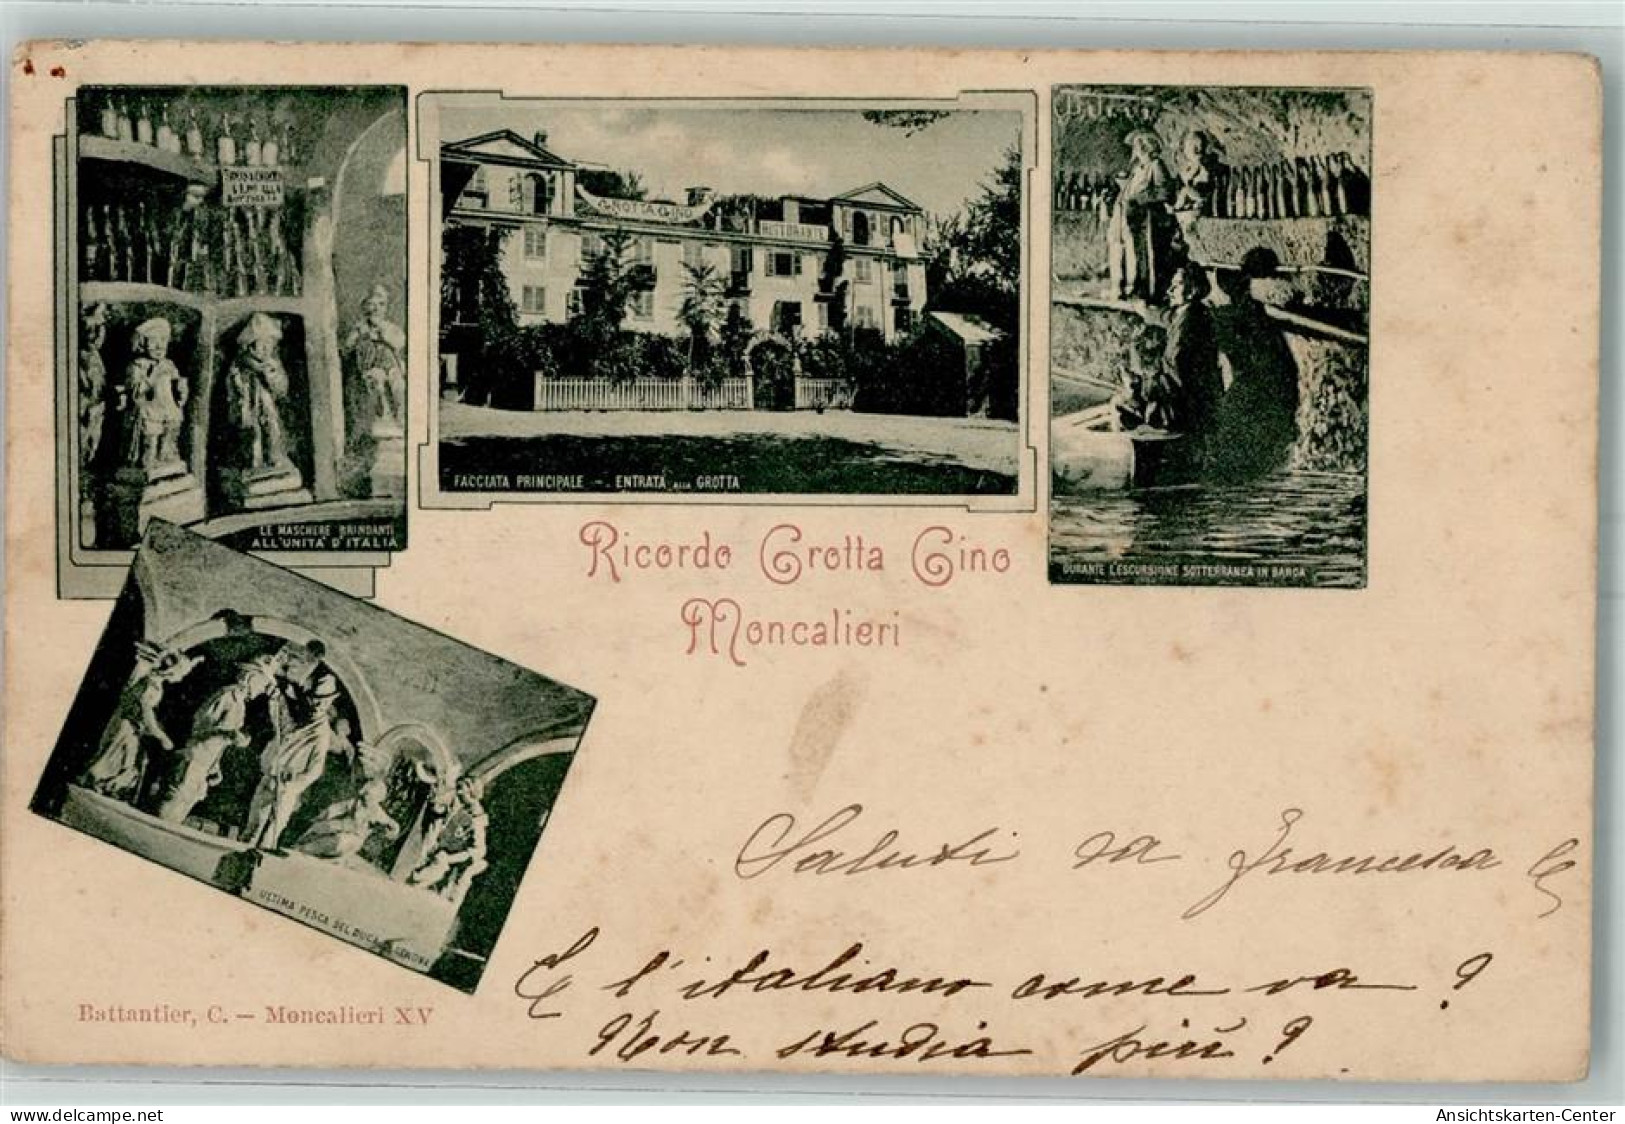 ALLA
GROTTA GINO
RISTORANTE
LE MASCHERE BRINDANTI
ALL'UNITA' D'ITALIA
FACCIATA PRINCIPALE - ENTRATA ALLA GROTTA
DURANTE L'ESCURSIONE SOTTERRANEA IN BARCA
Ricordo Grotta Gino
Moncalieri
ULTIMA PESCA DEL DUCA DI GENOVA
Saluti da Francesca C
E l'italiano come va?
Non studia più?
Battantier, C. — Moncalieri XV
delcampe.net
Ansichtskarten-Center